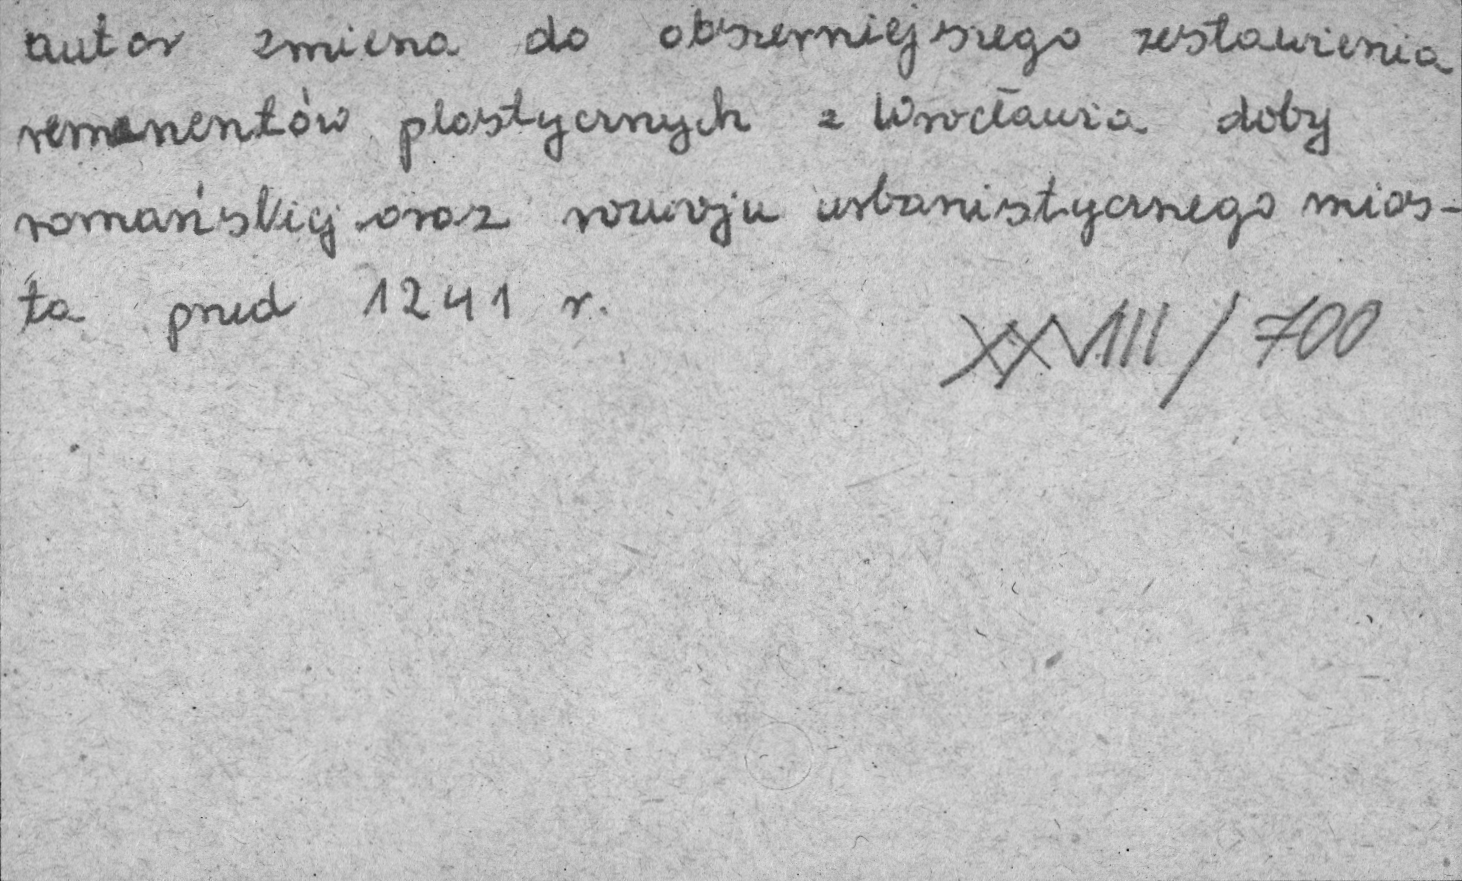 autor zmierza do obszerniejszego zestawienia
remanentów plastycznych z Wrocławia doby
romańskiej oraz rozwoju urbanistycznego mias-
ta przed 1241 r.
XXVIII/700